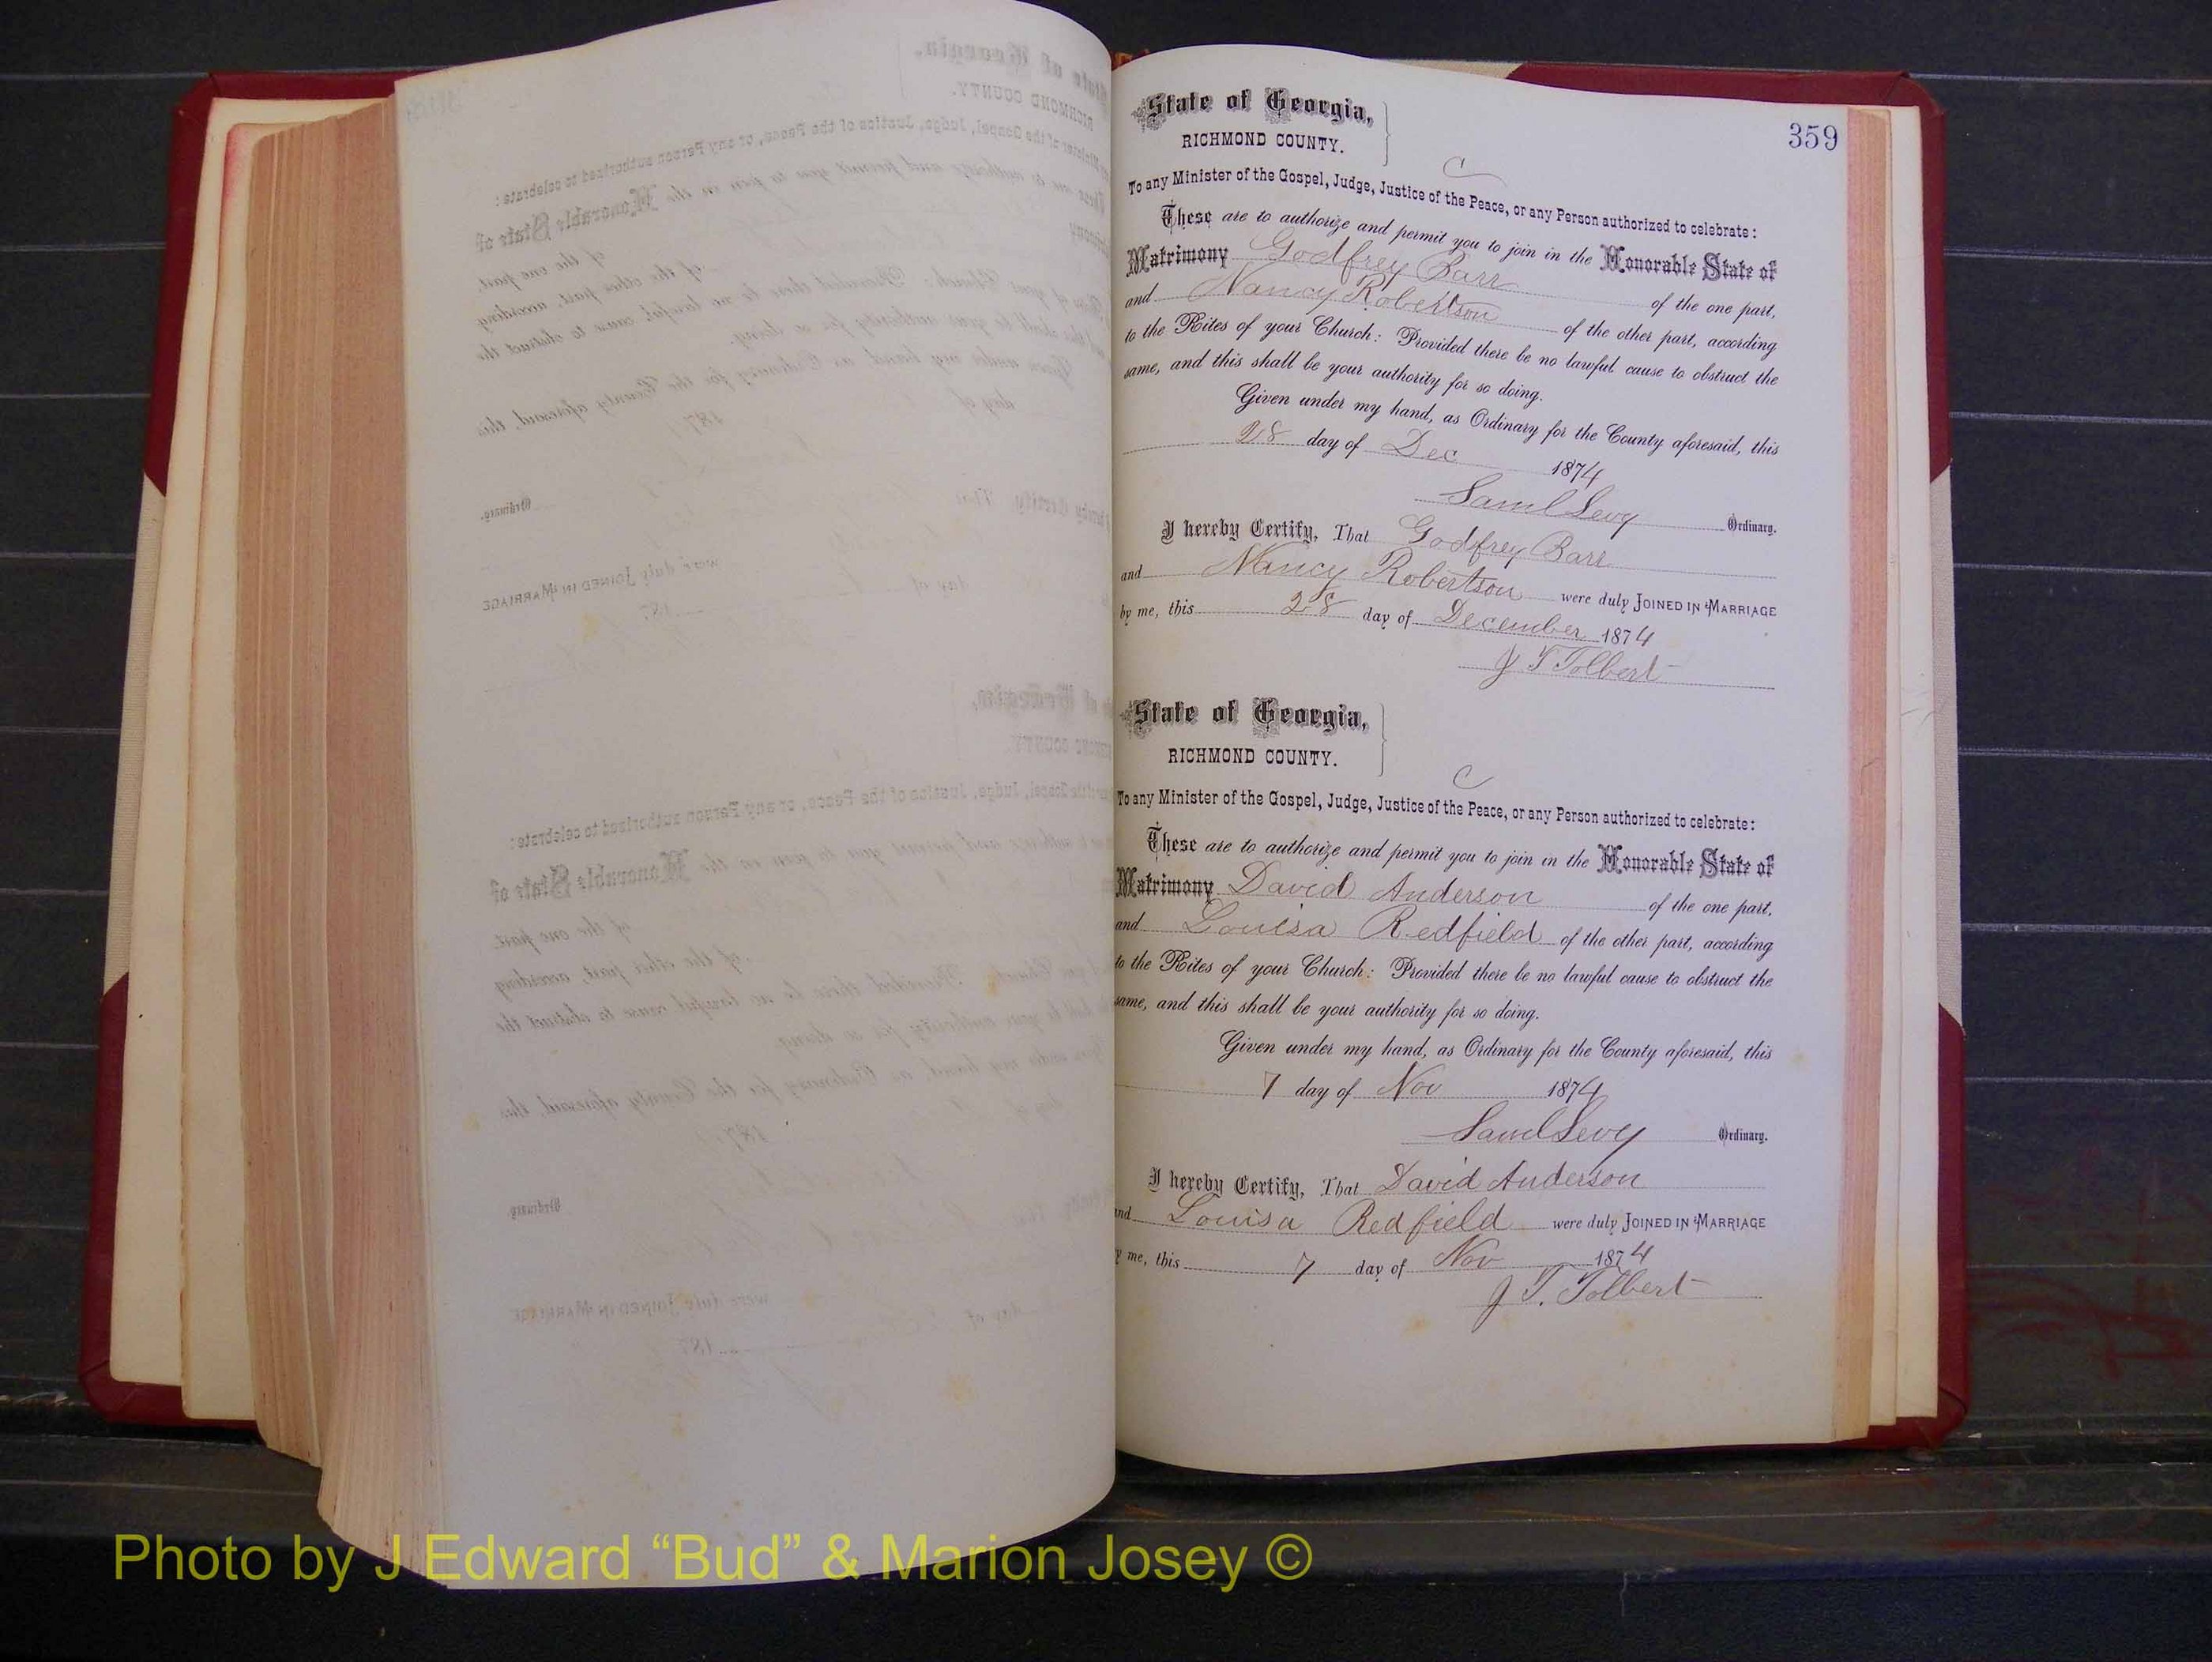 359
State of Georgia,
RICHMOND COUNTY.
C
To any Minister of the Gospel, Judge, Justice of the Peace, or any Person authorized to celebrate:
These are to authorize and permit you to join in the Honorable State of
Matrimony Godfrey Barr of the one part,
and Nancy Robertson of the other part, according
to the Rites of your Church: Provided there be no lawful cause to obstruct the
same, and this shall be your authority for so doing.
Given under my hand, as Ordinary for the County aforesaid, this
28 day of Dec 1874
Saml Levy Ordinary.
I hereby Certify, That Godfrey Barr
and Nancy Robertson were duly JOINED IN MARRIAGE
by me, this 28 day of December 1874
J T Tolbert
State of Georgia,
RICHMOND COUNTY.
C
To any Minister of the Gospel, Judge, Justice of the Peace, or any Person authorized to celebrate:
These are to authorize and permit you to join in the Honorable State of
Matrimony David Anderson of the one part,
and Louisa Redfield of the other part, according
to the Rites of your Church: Provided there be no lawful cause to obstruct the
same, and this shall be your authority for so doing.
Given under my hand, as Ordinary for the County aforesaid, this
7 day of Nov 1874
Saml Levy Ordinary.
I hereby Certify, That David Anderson
and Louisa Redfield were duly JOINED IN MARRIAGE
by me, this 7 day of Nov 1874
J. T. Tolbert
Photo by J Edward “Bud” & Marion Josey ©